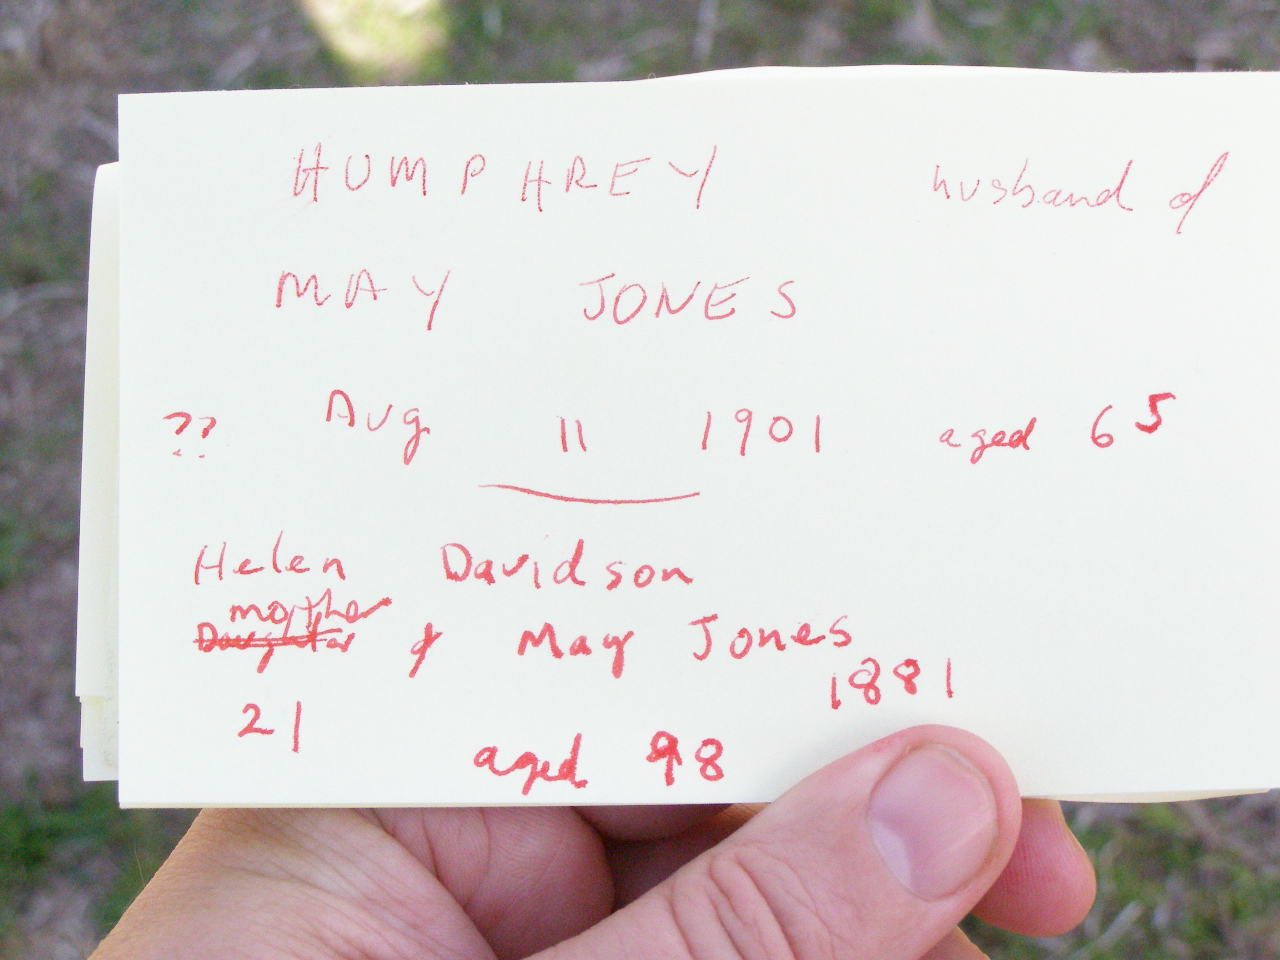 HUMPHREY husband of
MAY JONES
?? Aug 11 1901 aged 65
Helen Davidson
mother
Daughter of May Jones
1881
21
aged 98